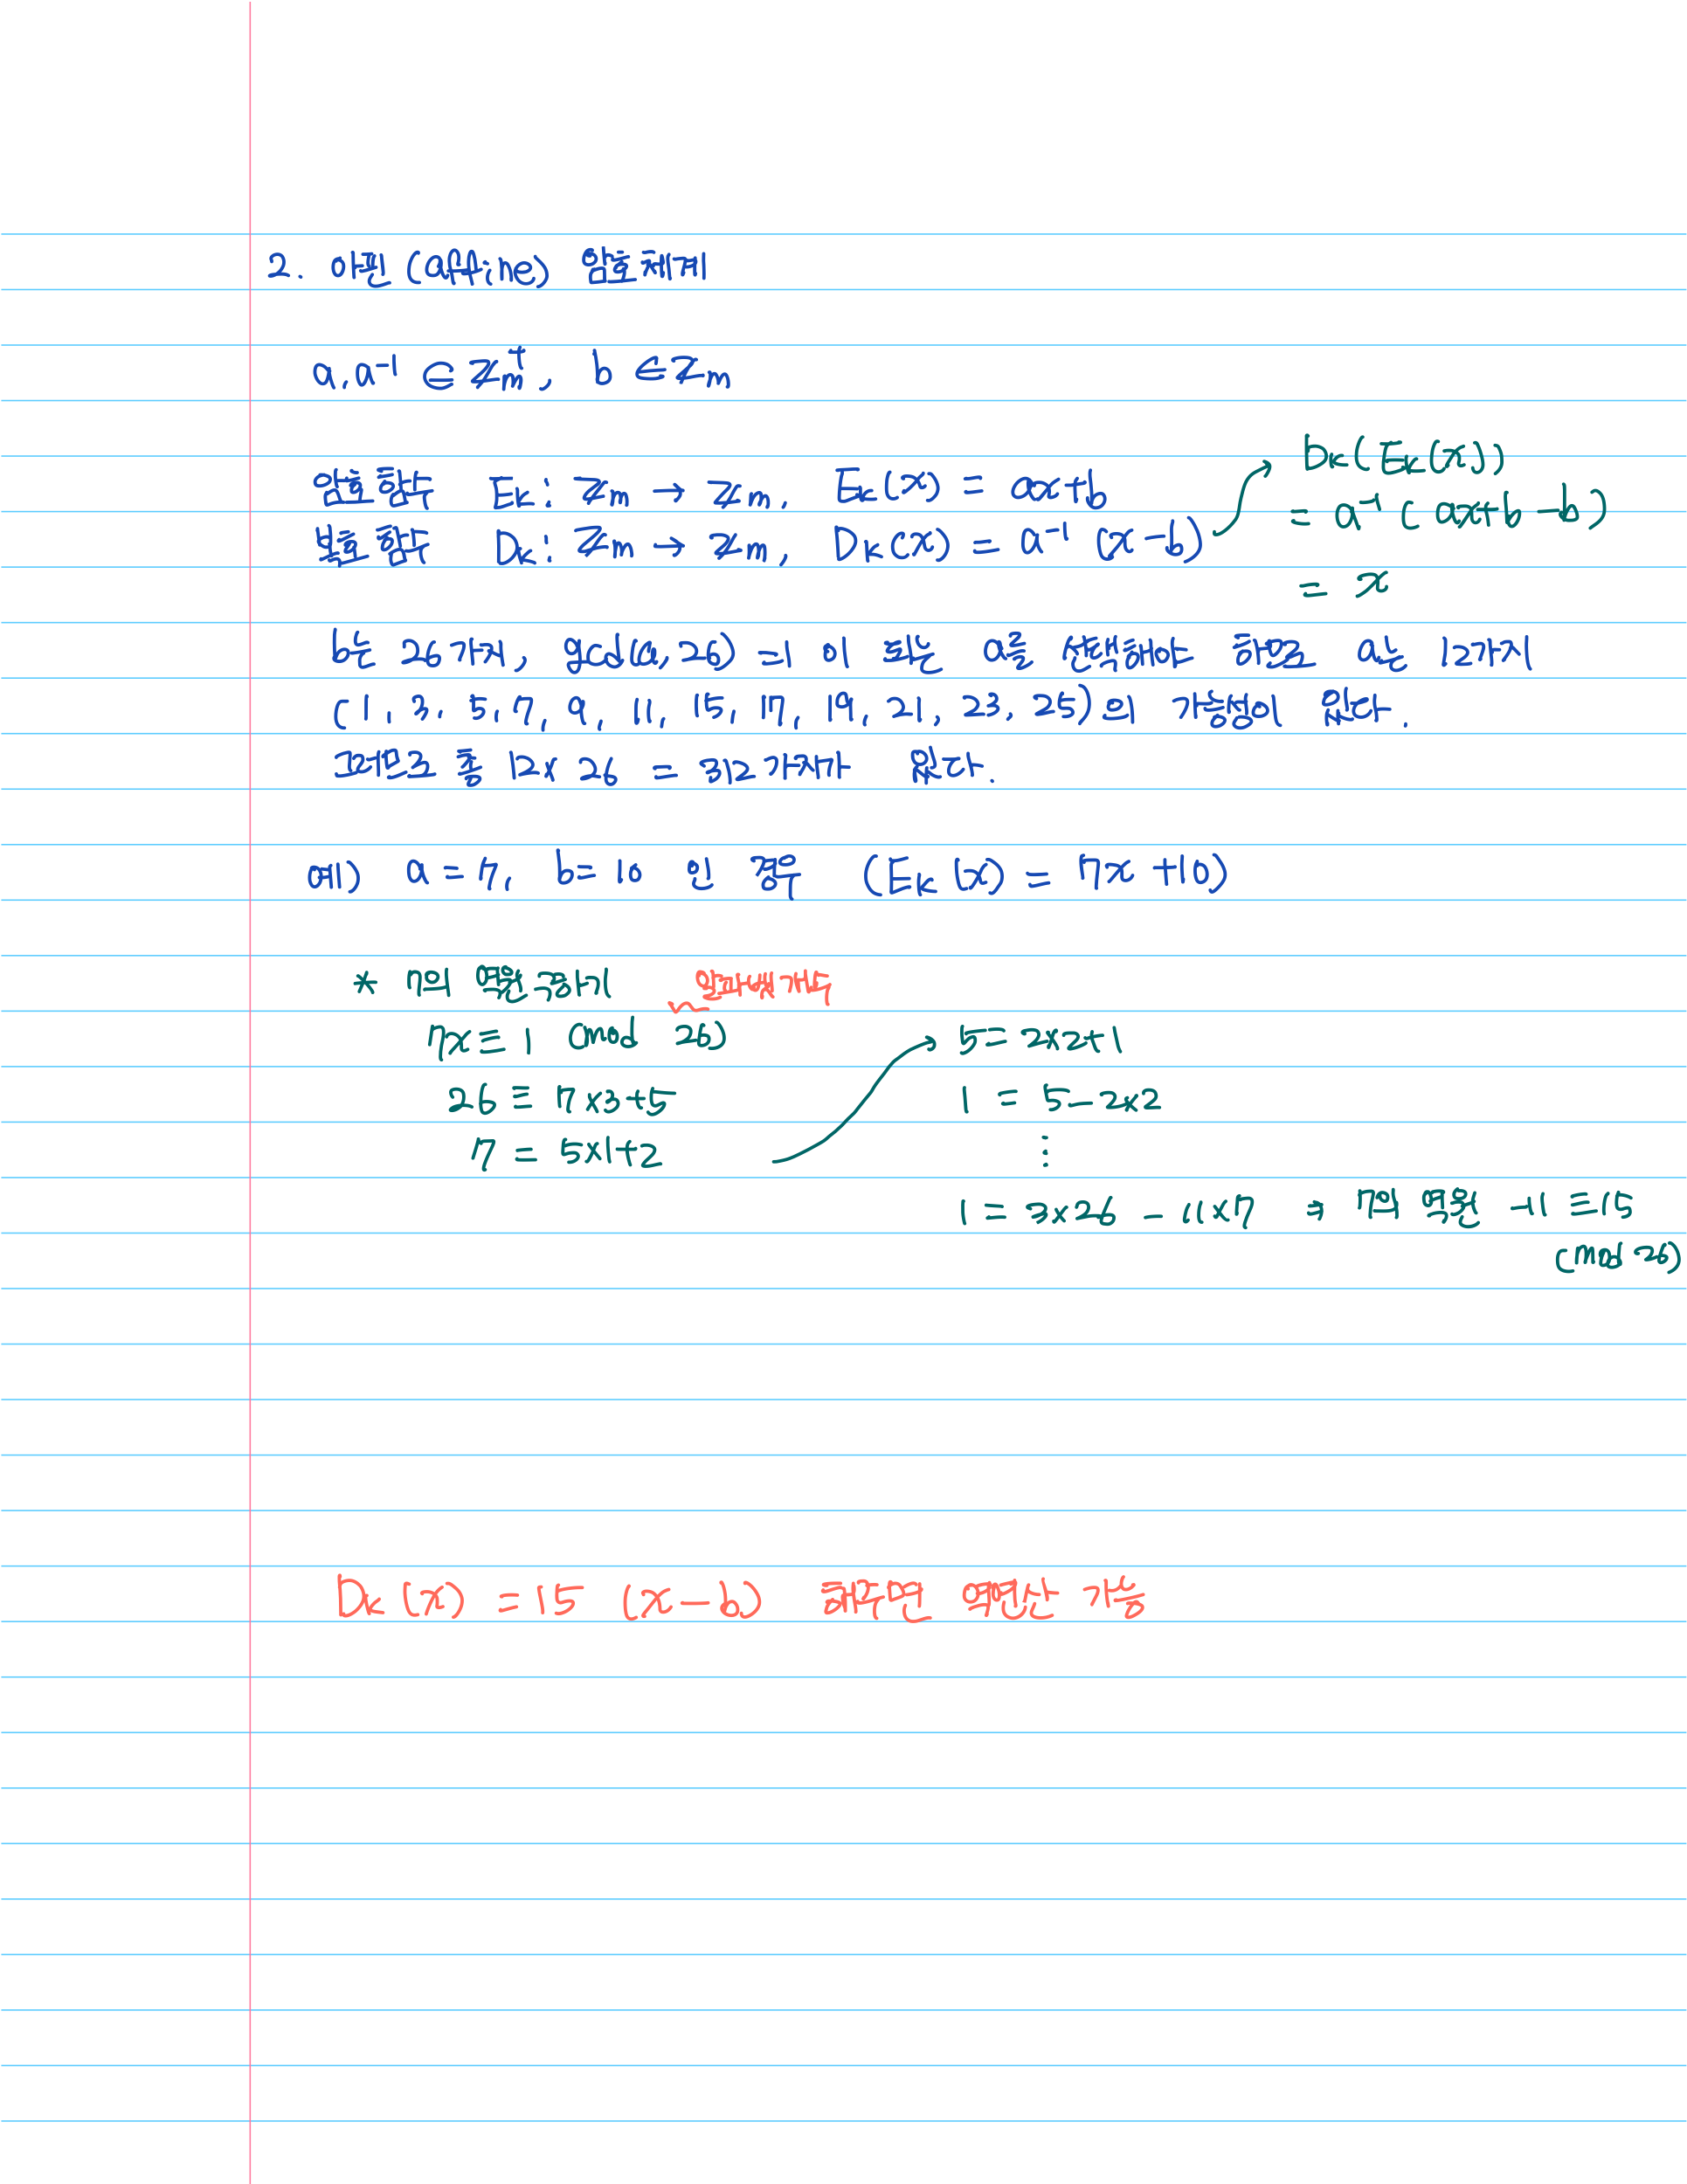 2. 아핀 (affine) 암호체계
a, a⁻¹ ∈ ℤₘ⁺, b ∈ ℤₘ
암호함수 Eₖ : ℤₘ → ℤₘ, Eₖ(x) = ax+b
복호함수 Dₖ : ℤₘ → ℤₘ, Dₖ(x) = a⁻¹ (x-b)
Dₖ(Eₖ(x))
= a⁻¹ (ax+b-b)
= x
b는 26가지, gcd(a, 26) =1 이 되는 a를 선택해야 하므로 a는 12가지
(1, 3, 5, 7, 9, 11, 15, 17, 19, 21, 23, 25)의 가능성이 있다.
그러므로 총 12 × 26 = 312가지가 있다.
예) a = 7, b = 10 인 경우 (Eₖ(x) = 7x +10)
* 7의 역원 구하기
알파벳 개수
7x ≡ 1 (mod 26)
26 ≡ 7×3+5
7 = 5×1+2
5 = 2×2+1
1 = 5-2×2
⋮
1 = 3×26 - 11×7 ⇒ 7의 역원 -11 ≡ 15
(mod 26)
Dₖ(x) = 15 (x-b) 해주면 역연산 가능